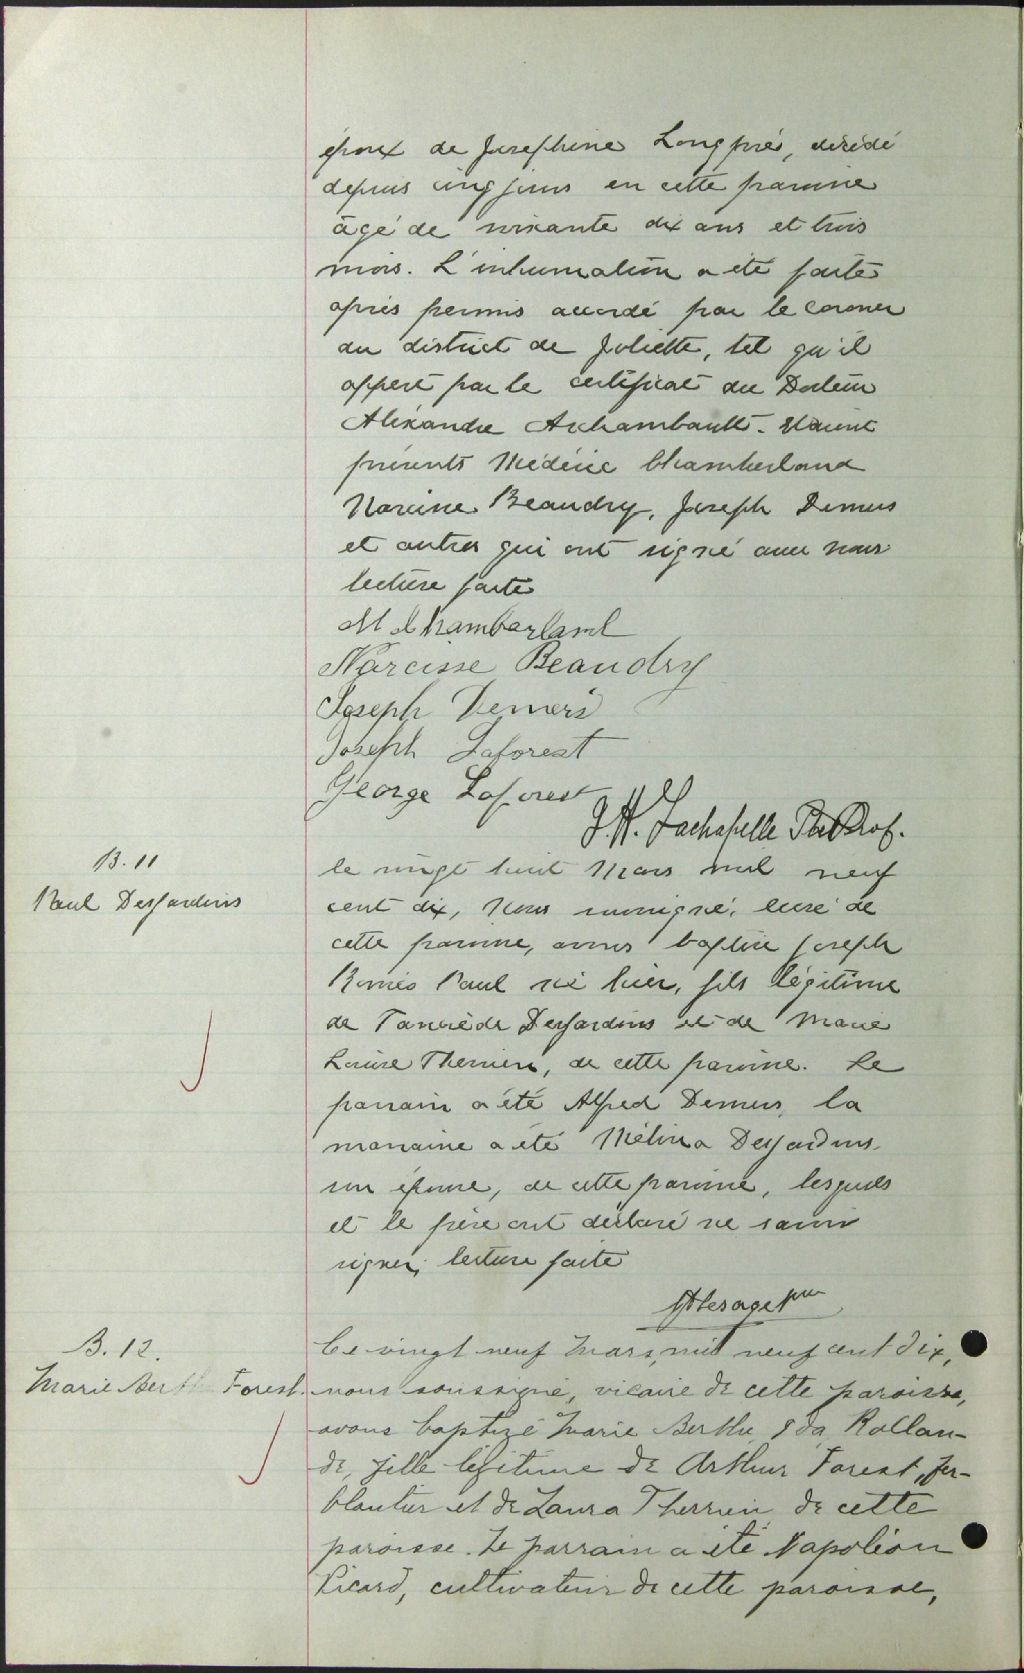 époux de Josephine Longprés, décédé
depuis cinq jours en cette paroisse
âgé de soixante dix ans et trois
mois. L'inhumation a été faite
après permis accordé par le coroner
du district de Joliette, tel qu'il
appert par le certificat du Docteur
Alexandre Archambault. Etaient
présents Médéric Chamberland
Narcisse Beaudry, Joseph Demers
et autres qui ont signé avec nous
lecture faite
M Chamberland
Narcisse Beaudry
Joseph Demers
Joseph Laforest
George Laforest
J. H. Lachapelle Ptre Prof.
B. 11
Paul Desjardins
le vingt huit Mars mil neuf
cent dix, Nous soussigné, curé de
cette paroisse, avons baptisé Joseph
Roméo Paul né hier, fils légitime
de Tancrède Desjardins et de Marie
Louise Therrien, de cette paroisse. Le
parrain a été Alfred Demers, la
marraine a été Mélina Desjardins
son épouse, de cette paroisse, lesquels
et le père ont déclaré ne savoir
signer, lecture faite
Lesage ptre
B. 12.
Marie Berthe Forest.
Ce vingt neuf Mars, mil neuf cent dix,
nous soussigné, vicaire de cette paroisse,
avons baptizé Marie Berthe Ida Rollan-
de, fille légitime de Arthur Forest, fer-
blantier et de Laura Therrien de cette
paroisse. Le parrain a été Napoléon
Picard, cultivateur de cette paroisse,